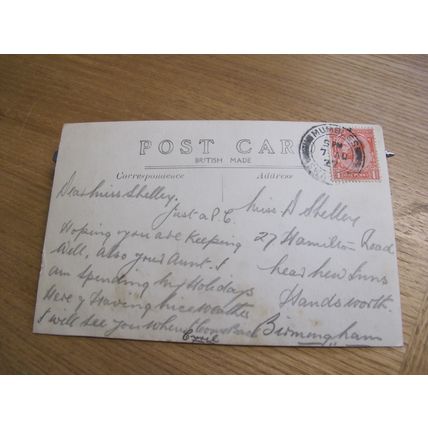 POST CAR
BRITISH MADE
Correspondence
Address
MUMBLES
Dear Miss Shelley,
Just a P.C.
Hoping you are keeping
Well, Also your Aunt. I
am Spending My Holidays
Here & Having nice Weather
I will see you when I come Back
Cyril
Miss D Shelley
27 Hamilton Road
near new Inns
Handsworth.
Birmingham